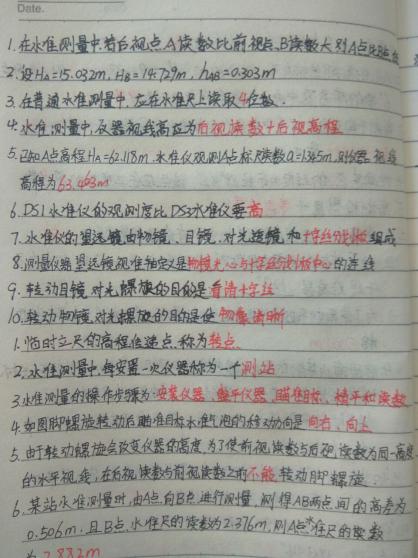 Date.
1. 在水准测量中,若后视点A读数比前视点B读数大,则A点比B点低
2. 设HA=15.032m, HB=14.729m, hAB=0.303m
3. 在普通水准测量中,应在水准尺上读取4位数.
4. 水准测量中,仪器视线高应为后视读数+后视高程
5. 已知A点高程HA=62.118m,水准仪观测A点标尺读数a=1345m,则仪器视线
高程为63.463m
6. DS1水准仪的观测度比DS3水准仪要高
7. 水准仪的望远镜由物镜、目镜、对光透镜和十字丝分划板组成
8. 测量仪器望远镜视准轴定义是物镜光心与十字丝分划板中心的连线
9. 转动目镜对光螺旋的目的是看清十字丝
10. 转动物镜对光螺旋的目的是使物像清晰
1. 临时立尺的高程传递点,称为转点.
2. 水准测量中,每安置一次仪器称为一个测站
3. 水准测量的操作步骤为:安装仪器、整平仪器、瞄准目标、精平和读数
4. 如图脚螺旋转动后瞄准目标水准气泡的移动方向是向右、向上
5. 由于转动螺旋会改变仪器的高度,为了使前视读数与后视读数为同一高度
的水平视线,在后视读数与前视读数之前不能转动脚螺旋
6. 某站水准测量时,由A点向B点进行测量,测得AB两点间的高差为
0.506m,且B点水准尺的读数为2.376m,则A点水准尺的读数
为2.882m